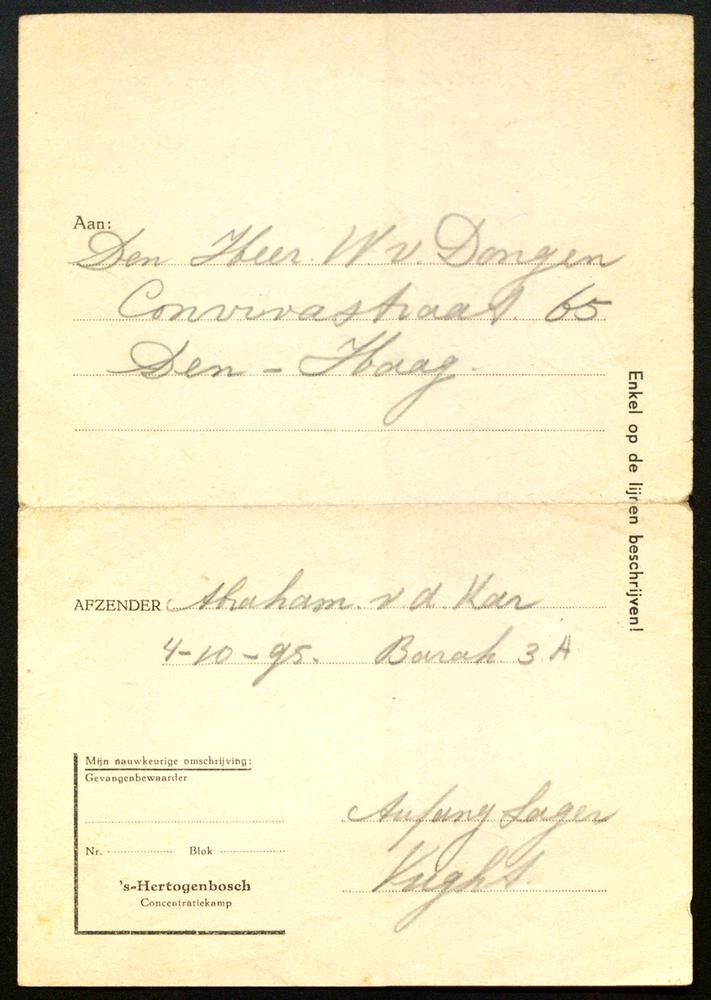 Aan:
Den Heer W. v. Dongen
Convivastraat. 65
Den - Haag.
Enkel op de lijnen beschrijven!
AFZENDER Abraham. v d. Kar
4-10-95. Barak 3 A
Mijn nauwkeurige omschrijving:
Gevangenbewaarder
Nr. Blok
's-Hertogenbosch
Concentratiekamp
Aufang Lager
Vught.